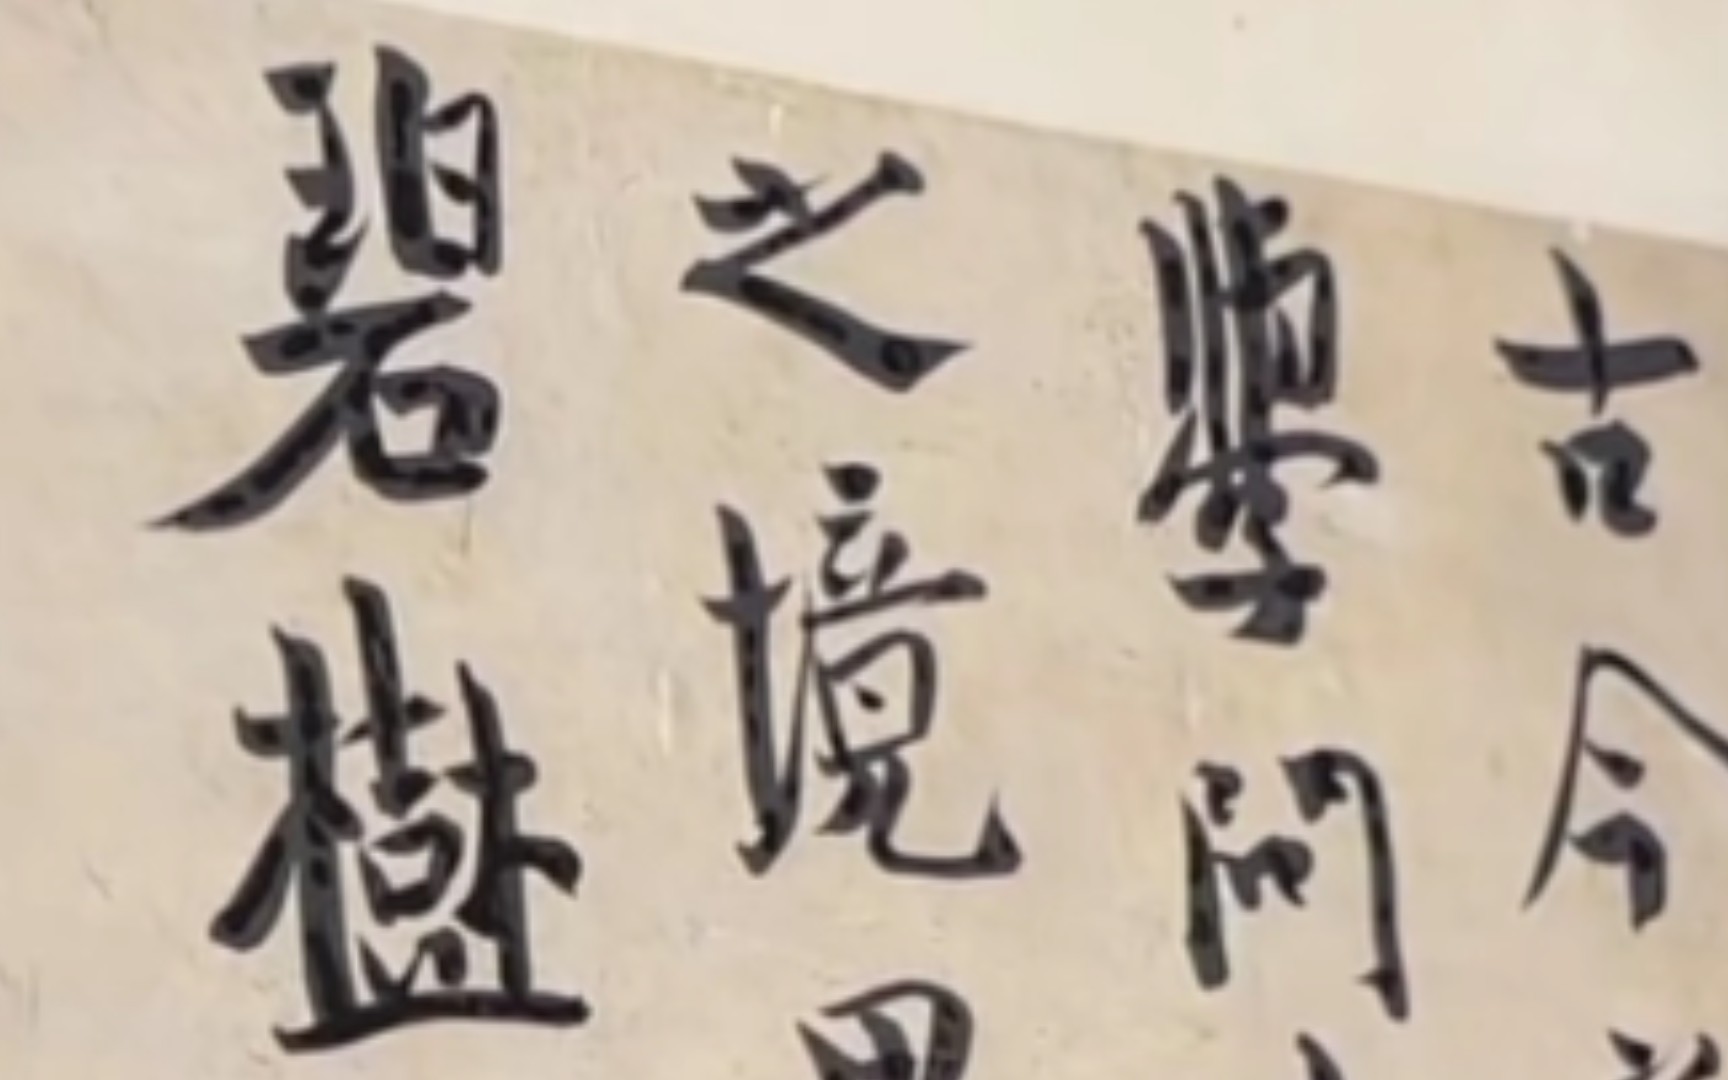 古今
學問
之境界
碧樹